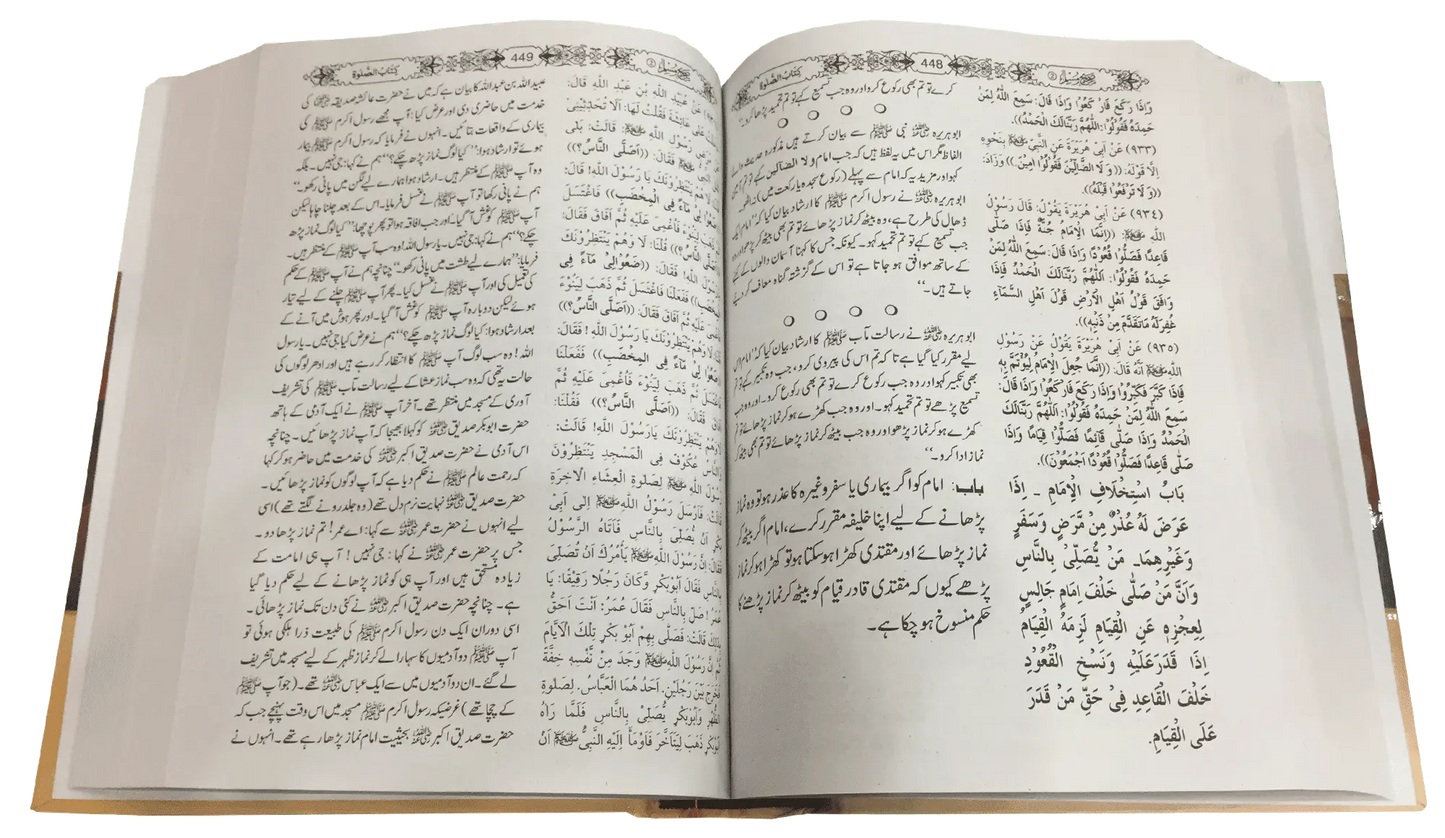 کتاب الصلوة 448 صحیح مسلم ②
وَاِذَا رَکَعَ فَارْکَعُوْا وَاِذَا قَالَ: سَمِعَ اللّٰهُ لِمَنْ
حَمِدَهٗ فَقُوْلُوْا: اَللّٰهُمَّ رَبَّنَالَكَ الْحَمْدُ)).
(۹۳۳) عَنْ اَبِیْ هُرَیْرَةَ عَنِ النَّبِیِّ ﷺ بِنَحْوِهٖ
اِلَّا قَوْلَهٗ: ((وَ لَا الضَّآلِّیْنَ فَقُوْلُوْا اٰمِیْنَ)) وَزَادَ:
((وَ لَا تَرْفَعُوْا قَبْلَهٗ)).
(۹۳٤) عَنْ اَبِیْ هُرَیْرَةَ یَقُوْلُ: قَالَ رَسُوْلُ
اللّٰهِ ﷺ: ((اِنَّمَا الْاِمَامُ جُنَّةٌ فَاِذَا صَلّٰی
قَاعِدًا فَصَلُّوْا قُعُوْدًا وَاِذَا قَالَ: سَمِعَ اللّٰهُ لِمَنْ
حَمِدَهٗ فَقُوْلُوْا: اَللّٰهُمَّ رَبَّنَالَكَ الْحَمْدُ فَاِذَا
وَافَقَ قَوْلُ اَهْلِ الْاَرْضِ قَوْلَ اَهْلِ السَّمَآءِ
غُفِرَلَهٗ مَاتَقَدَّمَ مِنْ ذَنْبِهٖ)).
(۹۳٥) عَنْ اَبِیْ هُرَیْرَةَ یَقُوْلُ عَنْ رَسُوْلِ
اللّٰهِ ﷺ اَنَّهٗ قَالَ: ((اِنَّمَا جُعِلَ الْاِمَامُ لِیُؤْتَمَّ بِهٖ
فَاِذَا کَبَّرَ فَکَبِّرُوْا وَاِذَا رَکَعَ فَارْکَعُوْا وَاِذَا قَالَ:
سَمِعَ اللّٰهُ لِمَنْ حَمِدَهٗ فَقُوْلُوْا: اَللّٰهُمَّ رَبَّنَالَكَ
الْحَمْدُ وَاِذَا صَلّٰی قَآئِمًا فَصَلُّوْا قِیَامًا وَاِذَا
صَلّٰی قَاعِدًا فَصَلُّوْا قُعُوْدًا اَجْمَعُوْنَ)).
بَابُ اسْتِخْلَافِ الْاِمَامِ ۔ اِذَا
عَرَضَ لَهٗ عُذْرٌ مِّنْ مَّرَضٍ وَسَفَرٍ
وَغَیْرِهِمَا۔ مَنْ یُّصَلِّیْ بِالنَّاسِ
وَاَنَّ مَنْ صَلّٰی خَلْفَ اِمَامٍ جَالِسٍ
لِعِجْزِهٖ عَنِ الْقِیَامِ لَزِمَهُ الْقِیَامُ
اِذَا قَدَرَعَلَیْهِ وَنَسْخِ الْقُعُوْدِ
خَلْفَ الْقَاعِدِ فِیْ حَقِّ مَنْ قَدَرَ
عَلَی الْقِیَامِ.
کرے تو تم بھی رکوع کرو اور وہ جب تسمیع کہے تو تم تحمید پڑھا کرو۔''
ابوہریرہ ؓ نبی ﷺ سے بیان کرتے ہیں مذکورہ حدیث والے
الفاظ مگر اس میں یہ لفظ ہیں کہ جب امام ولا الضالین کہے تو تم آمین
کہو اور مزید یہ کہ امام سے پہلے (رکوع سجدہ یا رکعت میں) نہ اٹھو۔
ابوہریرہ ؓ نے رسول اکرم ﷺ کا ارشاد بیان کیا کہ ''امام ایک
ڈھال کی طرح ہے، وہ بیٹھ کر نماز پڑھائے تو تم بھی بیٹھ کر پڑھو اور وہ
جب تسمیع کہے تو تم تحمید کہو۔ کیونکہ جس کا کہنا آسمان والوں کے کہنے
کے ساتھ موافق ہو جاتا ہے تو اس کے گزشتہ گناہ معاف کر دیئے
جاتے ہیں۔''
ابوہریرہ ؓ نے رسالت مآب ﷺ کا ارشاد بیان کیا کہ ''امام اس
لیے مقرر کیا گیا ہے تا کہ تم اس کی پیروی کرو، جب وہ تکبیر کہے تو تم
بھی تکبیر کہو اور وہ جب رکوع کرے تو تم بھی رکوع کرو۔ اور وہ جب
تسمیع پڑھے تو تم تحمید کہو۔ اور وہ جب کھڑے ہو کر نماز پڑھائے تو تم
کھڑے ہو کر نماز پڑھو اور وہ جب بیٹھ کر نماز پڑھائے تو تم بھی بیٹھ کر
نماز ادا کرو۔''
باب: امام کو اگر بیماری یا سفر وغیرہ کا عذر ہو تو وہ نماز
پڑھانے کے لیے اپنا خلیفہ مقرر کرے، امام اگر بیٹھ کر
نماز پڑھائے اور مقتدی کھڑا ہو سکتا ہو تو کھڑا ہو کر نماز
پڑھے کیوں کہ مقتدی قادر قیام کو بیٹھ کر نماز پڑھنے کا
حکم منسوخ ہو چکا ہے۔
کتاب الصلوة 449 صحیح مسلم ②
عَنْ عُبَیْدِ اللّٰهِ بْنِ عَبْدِ اللّٰهِ قَالَ:
عَلٰی عَآئِشَةَ فَقُلْتُ لَهَا: اَلَا تُحَدِّثِیْنِیْ
رَسُوْلِ اللّٰهِ ﷺ قَالَتْ: بَلٰی
ﷺ فَقَالَ: ((اَصَلَّی النَّاسُ؟))
وَهُمْ یَنْتَظِرُوْنَكَ یَا رَسُوْلَ اللّٰهِ! قَالَ:
لِیْ مَآءً فِی الْمِخْضَبِ)) فَاغْتَسَلَ
لِیَنُوْءَ فَاُغْمِیَ عَلَیْهِ ثُمَّ اَفَاقَ فَقَالَ:
النَّاسُ؟)) قُلْنَا: لَا وَهُمْ یَنْتَظِرُوْنَكَ
اللّٰهِ! فَقَالَ: ((ضَعُوْالِیْ مَآءً فِی
الْمِخْضَبِ)) فَفَعَلْنَا فَاغْتَسَلَ ثُمَّ ذَهَبَ لِیَنُوْءَ
عَلَیْهِ ثُمَّ اَفَاقَ فَقَالَ: ((اَصَلَّی النَّاسُ؟))
وَهُمْ یَنْتَظِرُوْنَكَ یَا رَسُوْلَ اللّٰهِ! فَقَالَ:
لِیْ مَآءً فِی الْمِخْضَبِ)) فَفَعَلْنَا
ثُمَّ ذَهَبَ لِیَنُوْءَ فَاُغْمِیَ عَلَیْهِ ثُمَّ
فَقَالَ: ((اَصَلَّی النَّاسُ؟)) فَقُلْنَا:
وَهُمْ یَنْتَظِرُوْنَكَ یَارَسُوْلَ اللّٰهِ! قَالَتْ:
عُکُوْفٌ فِی الْمَسْجِدِ یَنْتَظِرُوْنَ
رَسُوْلَ اللّٰهِ ﷺ لِصَلٰوةِ الْعِشَاءِ الْاٰخِرَةِ
قَالَتْ: فَاَرْسَلَ رَسُوْلُ اللّٰهِ ﷺ اِلٰی اَبِیْ
بَکْرٍ اَنْ یُصَلِّیَ بِالنَّاسِ فَاَتَاهُ الرَّسُوْلُ
فَقَالَ: اِنَّ رَسُوْلَ اللّٰهِ ﷺ یَاْمُرُكَ اَنْ تُصَلِّیَ
بِالنَّاسِ فَقَالَ اَبُوْبَکْرٍ وَّکَانَ رَجُلًا رَقِیْقًا: یَا
عُمَرُ! صَلِّ بِالنَّاسِ فَقَالَ عُمَرُ: اَنْتَ اَحَقُّ
بِذٰلِكَ قَالَتْ: فَصَلّٰی بِهِمْ اَبُوْ بَکْرٍ تِلْكَ الْاَیَّامَ
ثُمَّ اِنَّ رَسُوْلَ اللّٰهِ ﷺ وَجَدَ مِنْ نَّفْسِهٖ خِفَّةً
فَخَرَجَ بَیْنَ رَجُلَیْنِ. اَحَدُهُمَا الْعَبَّاسُ. لِصَلٰوةِ
الظُّهْرِ وَاَبُوْبَکْرٍ یُصَلِّیْ بِالنَّاسِ فَلَمَّا رَاٰهُ
اَبُوْبَکْرٍ ذَهَبَ لِیَتَاَخَّرَ فَاَوْمَأَ اِلَیْهِ النَّبِیُّ ﷺ اَنْ
عبیداللہ بن عبداللہ کا بیان ہے کہ میں نے حضرت عائشہ صدیقہ ؓ کی
خدمت میں حاضری دی اور عرض کیا: آپ مجھے رسول اکرم ﷺ کی
بیماری کے واقعات بتائیں۔ انہوں نے فرمایا کہ رسول اکرم ﷺ بیمار
ہوئے تو ارشاد ہوا: ''کیا لوگ نماز پڑھ چکے؟'' ہم نے کہا: جی نہیں۔ بلکہ
وہ آپ ﷺ کے منتظر ہیں۔ ارشاد ہوا ہمارے لیے لگن میں پانی رکھو۔''
ہم نے پانی رکھا تو آپ ﷺ نے غسل فرمایا۔ اس کے بعد چلنا چاہا لیکن
آپ ﷺ کو غش آ گیا۔ اور جب افاقہ ہوا تو پھر پوچھا: ''کیا لوگ نماز پڑھ
چکے؟'' ہم نے کہا: جی نہیں۔ یا رسول اللہ! وہ سب آپ ﷺ کے منتظر ہیں۔
فرمایا: ''ہمارے لیے طشت میں پانی رکھو۔'' چنانچہ ہم نے آپ ﷺ کے حکم
کی تعمیل کی اور آپ ﷺ نے غسل کیا۔ پھر آپ ﷺ چلنے کے لیے تیار
ہوئے لیکن دوبارہ آپ ﷺ کو غش آ گیا۔ اور پھر ہوش میں آنے کے
بعد ارشاد ہوا: کیا لوگ نماز پڑھ چکے؟'' ہم نے عرض کیا جی نہیں۔ یا رسول
اللہ! وہ سب لوگ آپ ﷺ کا انتظار کر رہے ہیں اور ادھر لوگوں کی
حالت یہ تھی کہ وہ سب نماز عشا کے لیے رسالت مآب ﷺ کی تشریف
آوری کے مسجد میں منتظر تھے۔ آخر آپ ﷺ نے ایک آدمی کے ہاتھ
حضرت ابوبکر صدیق ؓ کو کہلا بھیجا کہ آپ نماز پڑھائیں۔ چنانچہ
اس آدمی نے حضرت صدیق اکبر ؓ کی خدمت میں حاضر ہو کر کہا
کہ رحمت عالم ﷺ نے حکم دیا ہے کہ آپ لوگوں کو نماز پڑھائیں۔
حضرت صدیق ؓ نہایت نرم دل تھے (وہ جلد رونے لگتے تھے) اسی
لیے انہوں نے حضرت عمر ؓ سے کہا: اے عمر! تم نماز پڑھا دو۔
جس پر حضرت عمر ؓ نے کہا: جی نہیں! آپ ہی امامت کے
زیادہ مستحق ہیں اور آپ ہی کو نماز پڑھانے کے لیے حکم دیا گیا
ہے۔ چنانچہ حضرت صدیق اکبر ؓ نے کئی دن تک نماز پڑھائی۔
اسی دوران ایک دن رسول اکرم ﷺ کی طبیعت ذرا ہلکی ہوئی تو
آپ ﷺ دو آدمیوں کا سہارا لے کر نماز ظہر کے لیے مسجد میں تشریف
لے گئے۔ ان دو آدمیوں میں سے ایک عباس ؓ تھے۔ (جو آپ ﷺ
کے چچا تھے) غرضیکہ رسول اکرم ﷺ مسجد میں اس وقت پہنچے جب کہ
حضرت صدیق اکبر ؓ بحیثیت امام نماز پڑھا رہے تھے۔ انہوں نے